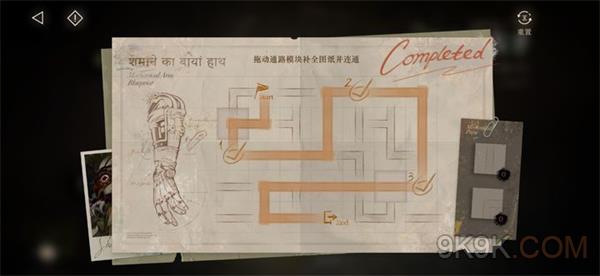 重置
शमाने का बायां हाथ
Mechanical Arm
Blueprint
拖动通路模块补全图纸并连通
Completed
Start
1
2
3
End
0
0
9K9K.COM